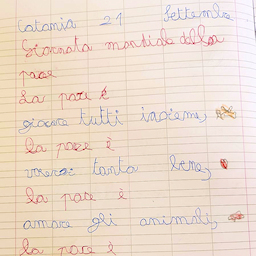 Catania 21 Settembre
Giornata mondiale della
pace
La pace è
giocare tutti insieme,
La pace è
volersi tanto bene,
la pace è
amare gli animali,
la pace è